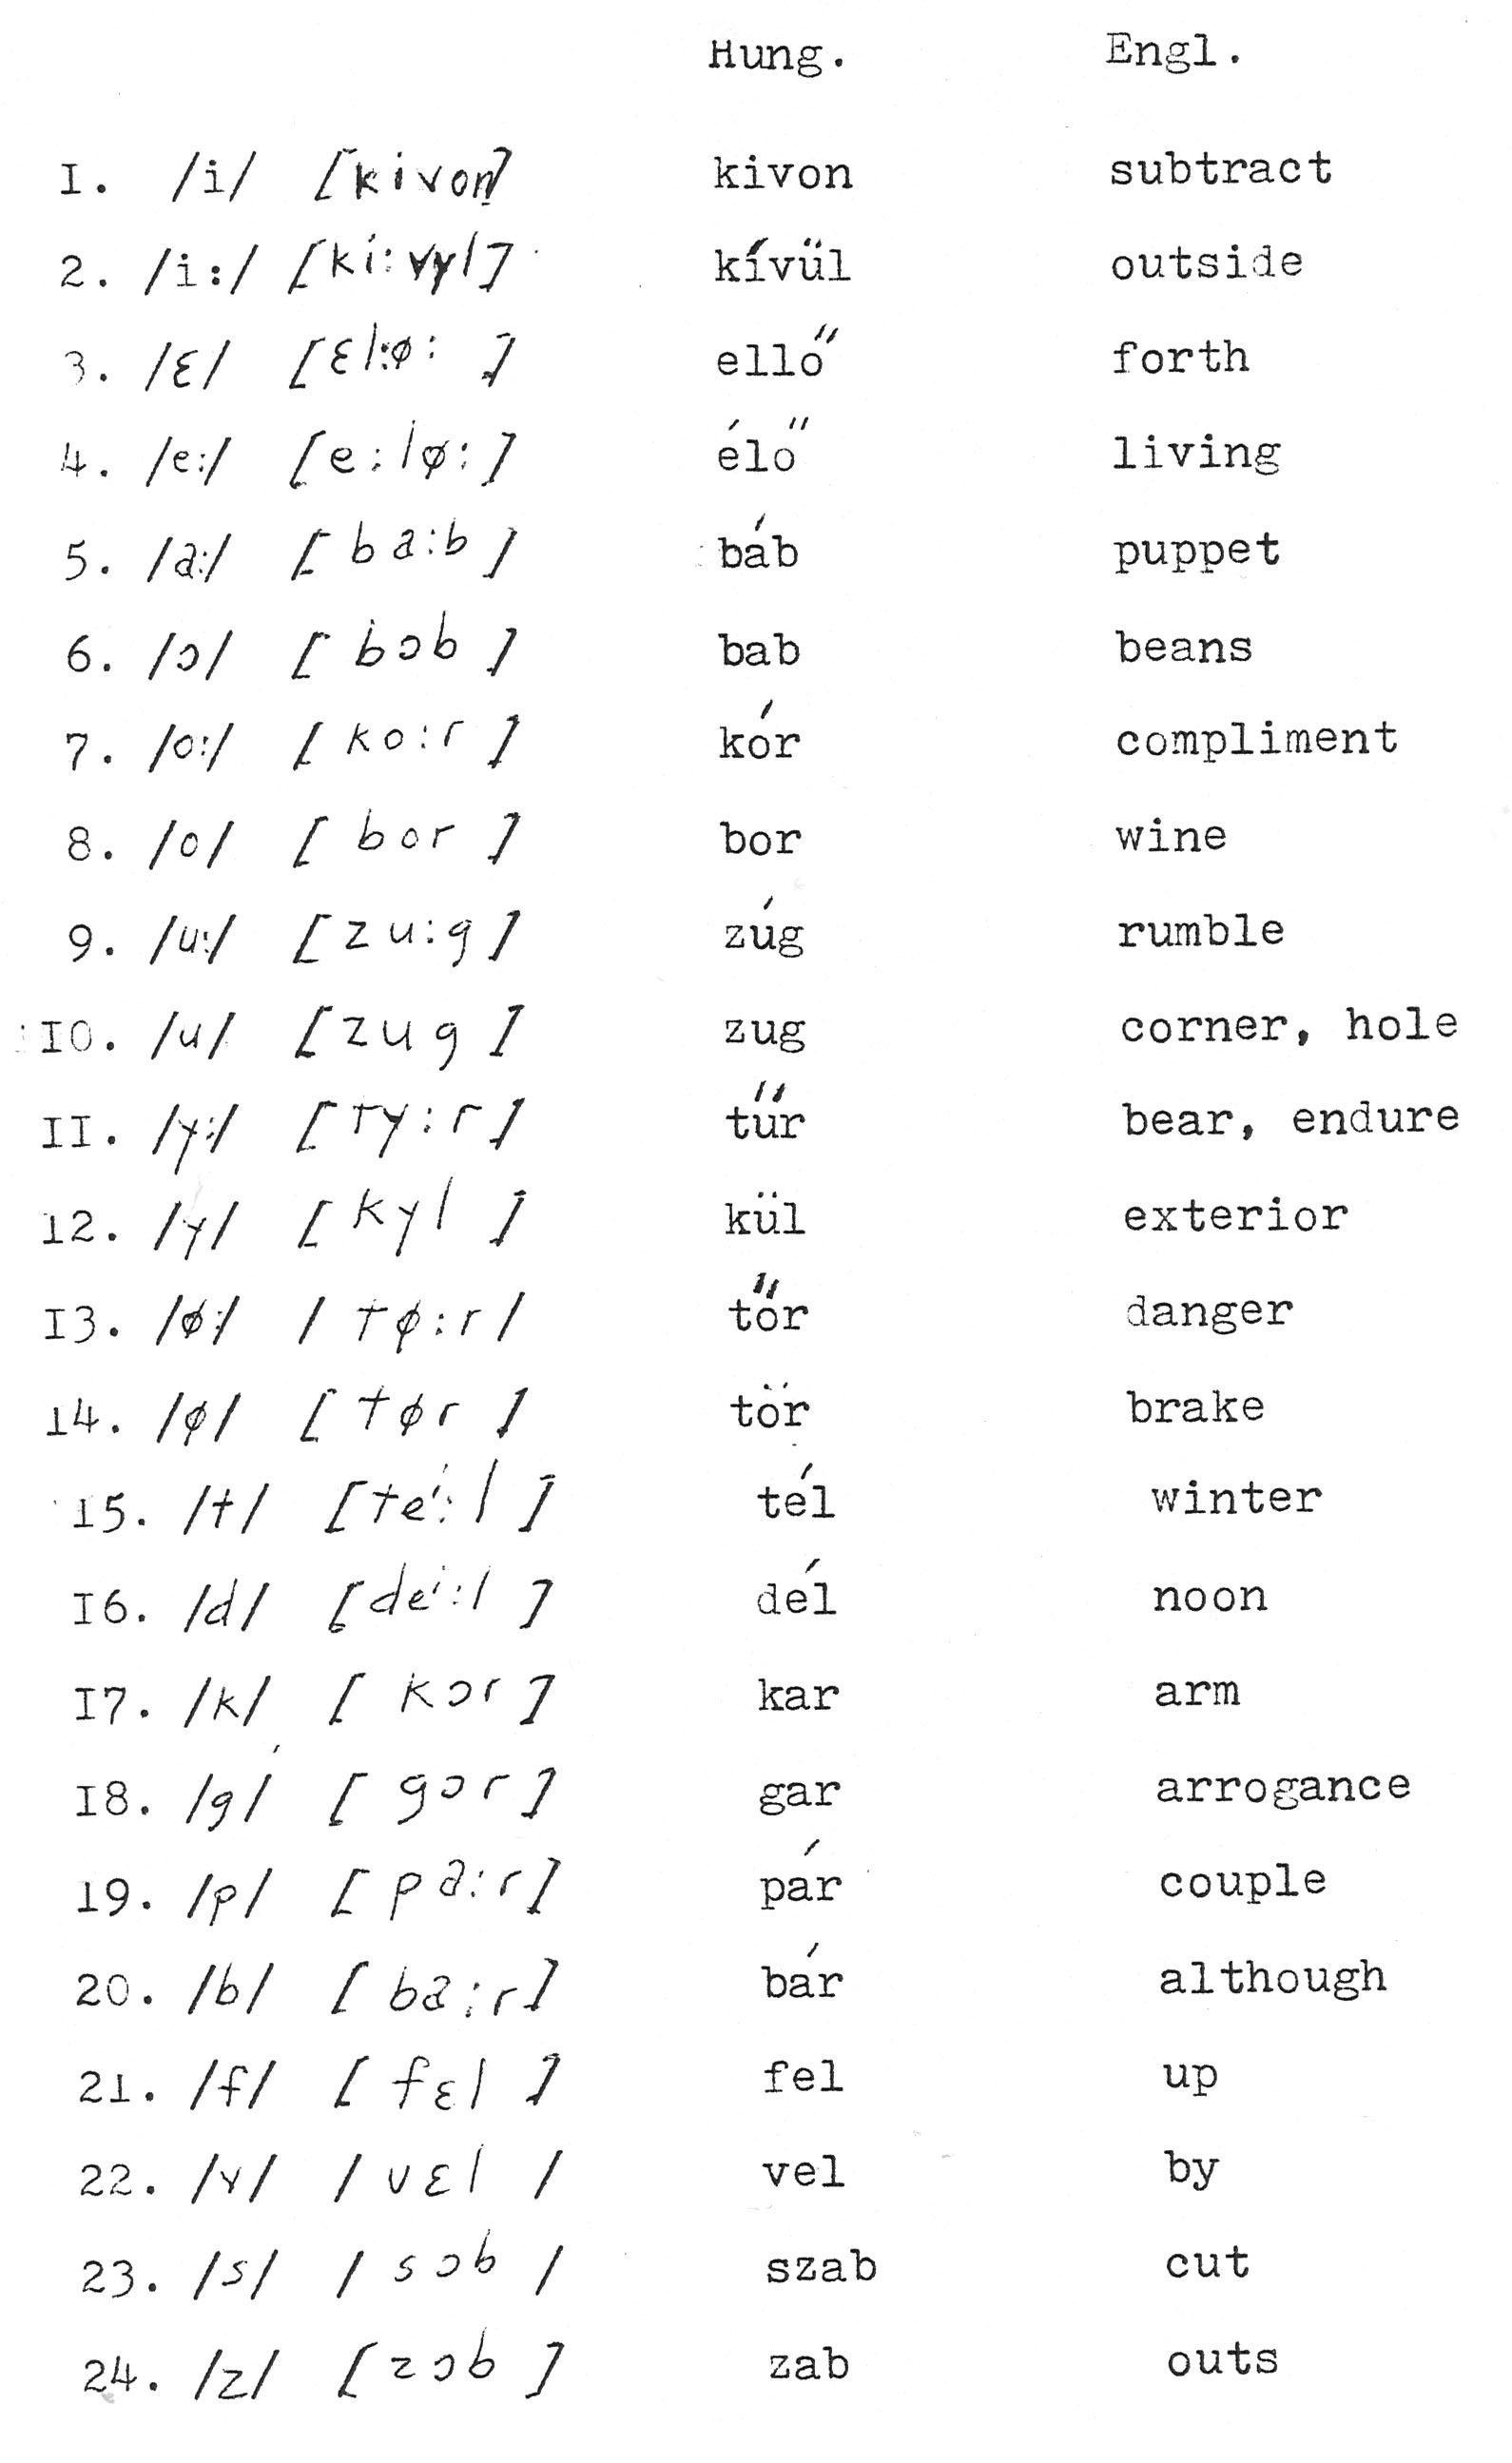 Hung. Engl.
I. /i/ [kivon] kivon subtract
2. /i:/ [ki:vyl] kívül outside
3. /ɛ/ [ɛl:ø: ] ellő forth
4. /e:/ [e:lø:] élő living
5. /a:/ [ba:b] báb puppet
6. /ɔ/ [bɔb] bab beans
7. /o:/ [ko:r] kór compliment
8. /o/ [bor] bor wine
9. /u:/ [zu:g] zúg rumble
I0. /u/ [zug] zug corner, hole
II. /y:/ [ty:r] tűr bear, endure
12. /y/ [kyl] kül exterior
I3. /ø:/ /tø:r/ tőr danger
14. /ø/ [tør] tör brake
15. /t/ [té:l] tél winter
I6. /d/ [dé:l] dél noon
I7. /k/ [kɔr] kar arm
I8. /g/ [gɔr] gar arrogance
19. /p/ [pa:r] pár couple
20. /b/ [ba:r] bár although
21. /f/ [fɛl] fel up
22. /v/ /vɛl/ vel by
23. /s/ /sɔb/ szab cut
24. /z/ [zɔb] zab outs